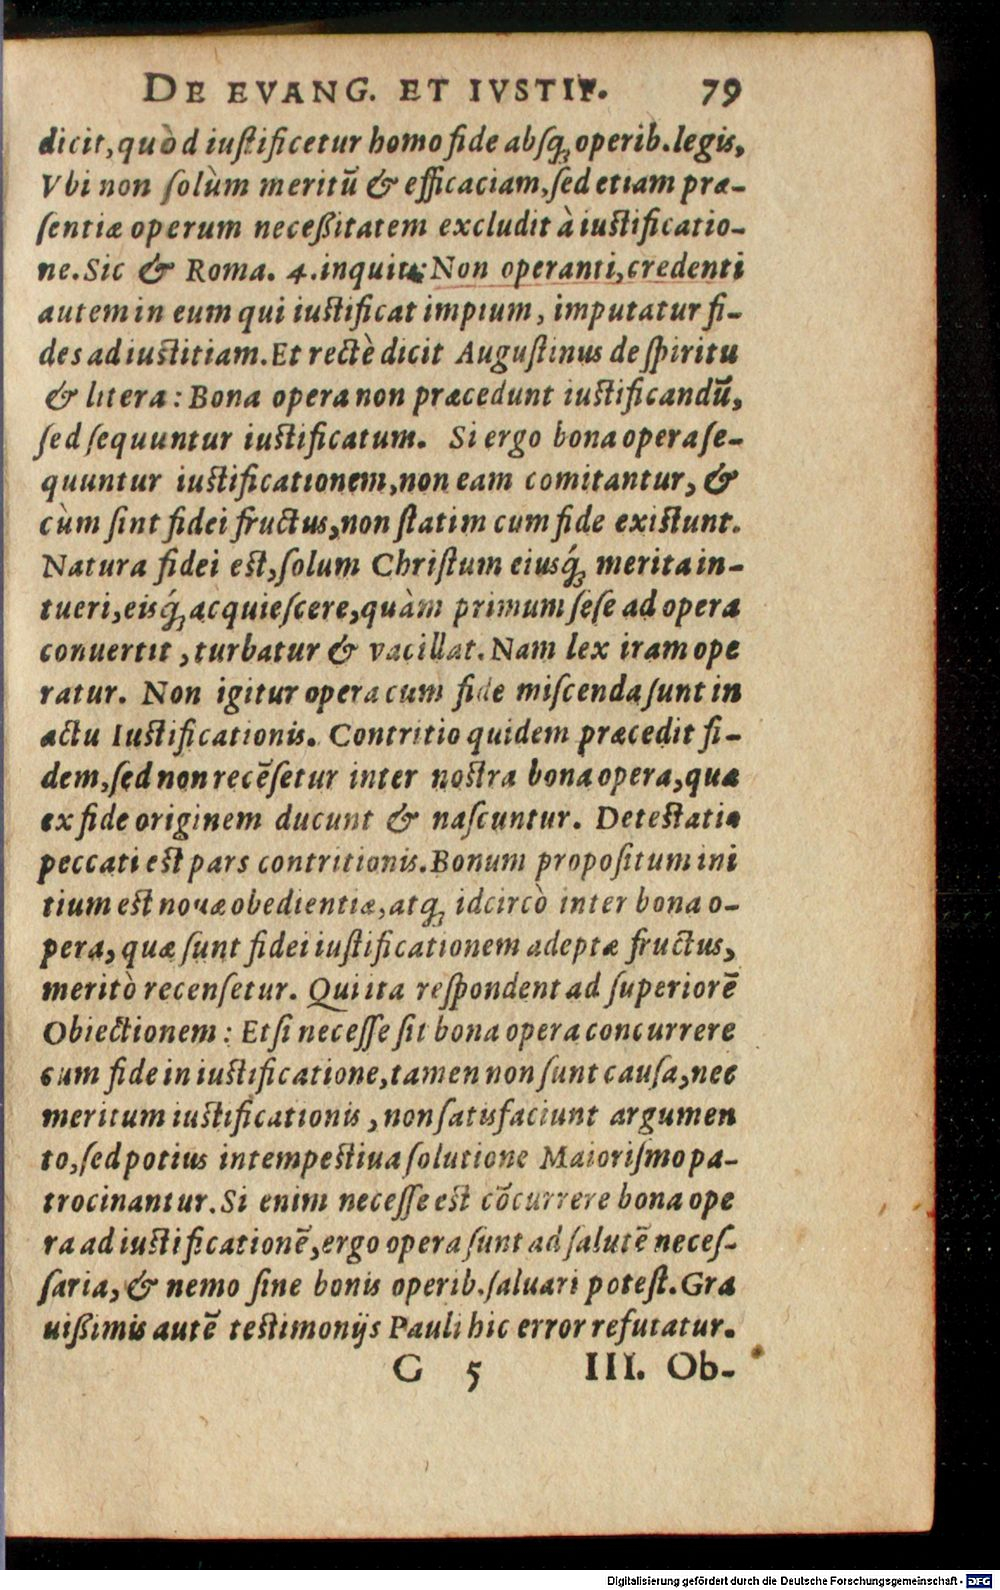 DE EVANG. ET IVSTIF. 79
dicit, quòd iuſtificetur homo fide abſq; operib. legis,
Vbi non ſolùm meritũ & efficaciam, ſed etiam præ-
ſentiæ operum neceßitatem excludit à iuſtificatio-
ne. Sic & Roma. 4. inquit: Non operanti, credenti
autem in eum qui iuſtificat impium, imputatur fi-
des ad iuſtitiam. Et rectè dicit Auguſtinus de ſpiritu
& litera: Bona opera non præcedunt iuſtificandũ,
ſed ſequuntur iuſtificatum. Si ergo bona opera ſe-
quuntur iuſtificationem, non eam comitantur, &
cùm ſint fidei fructus, non ſtatim cum fide exiſtunt.
Natura fidei eſt, ſolum Chriſtum eiusq́; merita in-
tueri, eisq́; acquieſcere, quàm primum ſeſe ad opera
conuertit, turbatur & vacillat. Nam lex iram ope
ratur. Non igitur opera cum fide miſcenda ſunt in
actu Iuſtificationis. Contritio quidem præcedit fi-
dem, ſed non recẽſetur inter noſtra bona opera, quæ
ex fide originem ducunt & naſcuntur. Deteſtatio
peccati eſt pars contritionis. Bonum propoſitum ini
tium eſt nouæ obedientiæ, atq; idcircò inter bona o-
pera, quæ ſunt fidei iuſtificationem adeptæ fructus,
meritò recenſetur. Qui ita reſpondent ad ſuperiorẽ
Obiectionem: Etſi neceſſe ſit bona opera concurrere
cum fide in iuſtificatione, tamen non ſunt cauſa, nec
meritum iuſtificationis, non ſatisfaciunt argumen
to, ſed potius intempeſtiua ſolutione Maioriſmo pa-
trocinantur. Si enim neceſſe eſt cõcurrere bona ope
ra ad iuſtificationẽ, ergo opera ſunt ad ſalutẽ neceſ-
ſaria, & nemo ſine bonis operib. ſaluari poteſt. Gra
uißimis autẽ teſtimonijs Pauli hic error refutatur.
G 5 III. Ob-
Digitalisierung gefördert durch die Deutsche Forschungsgemeinschaft - DFG